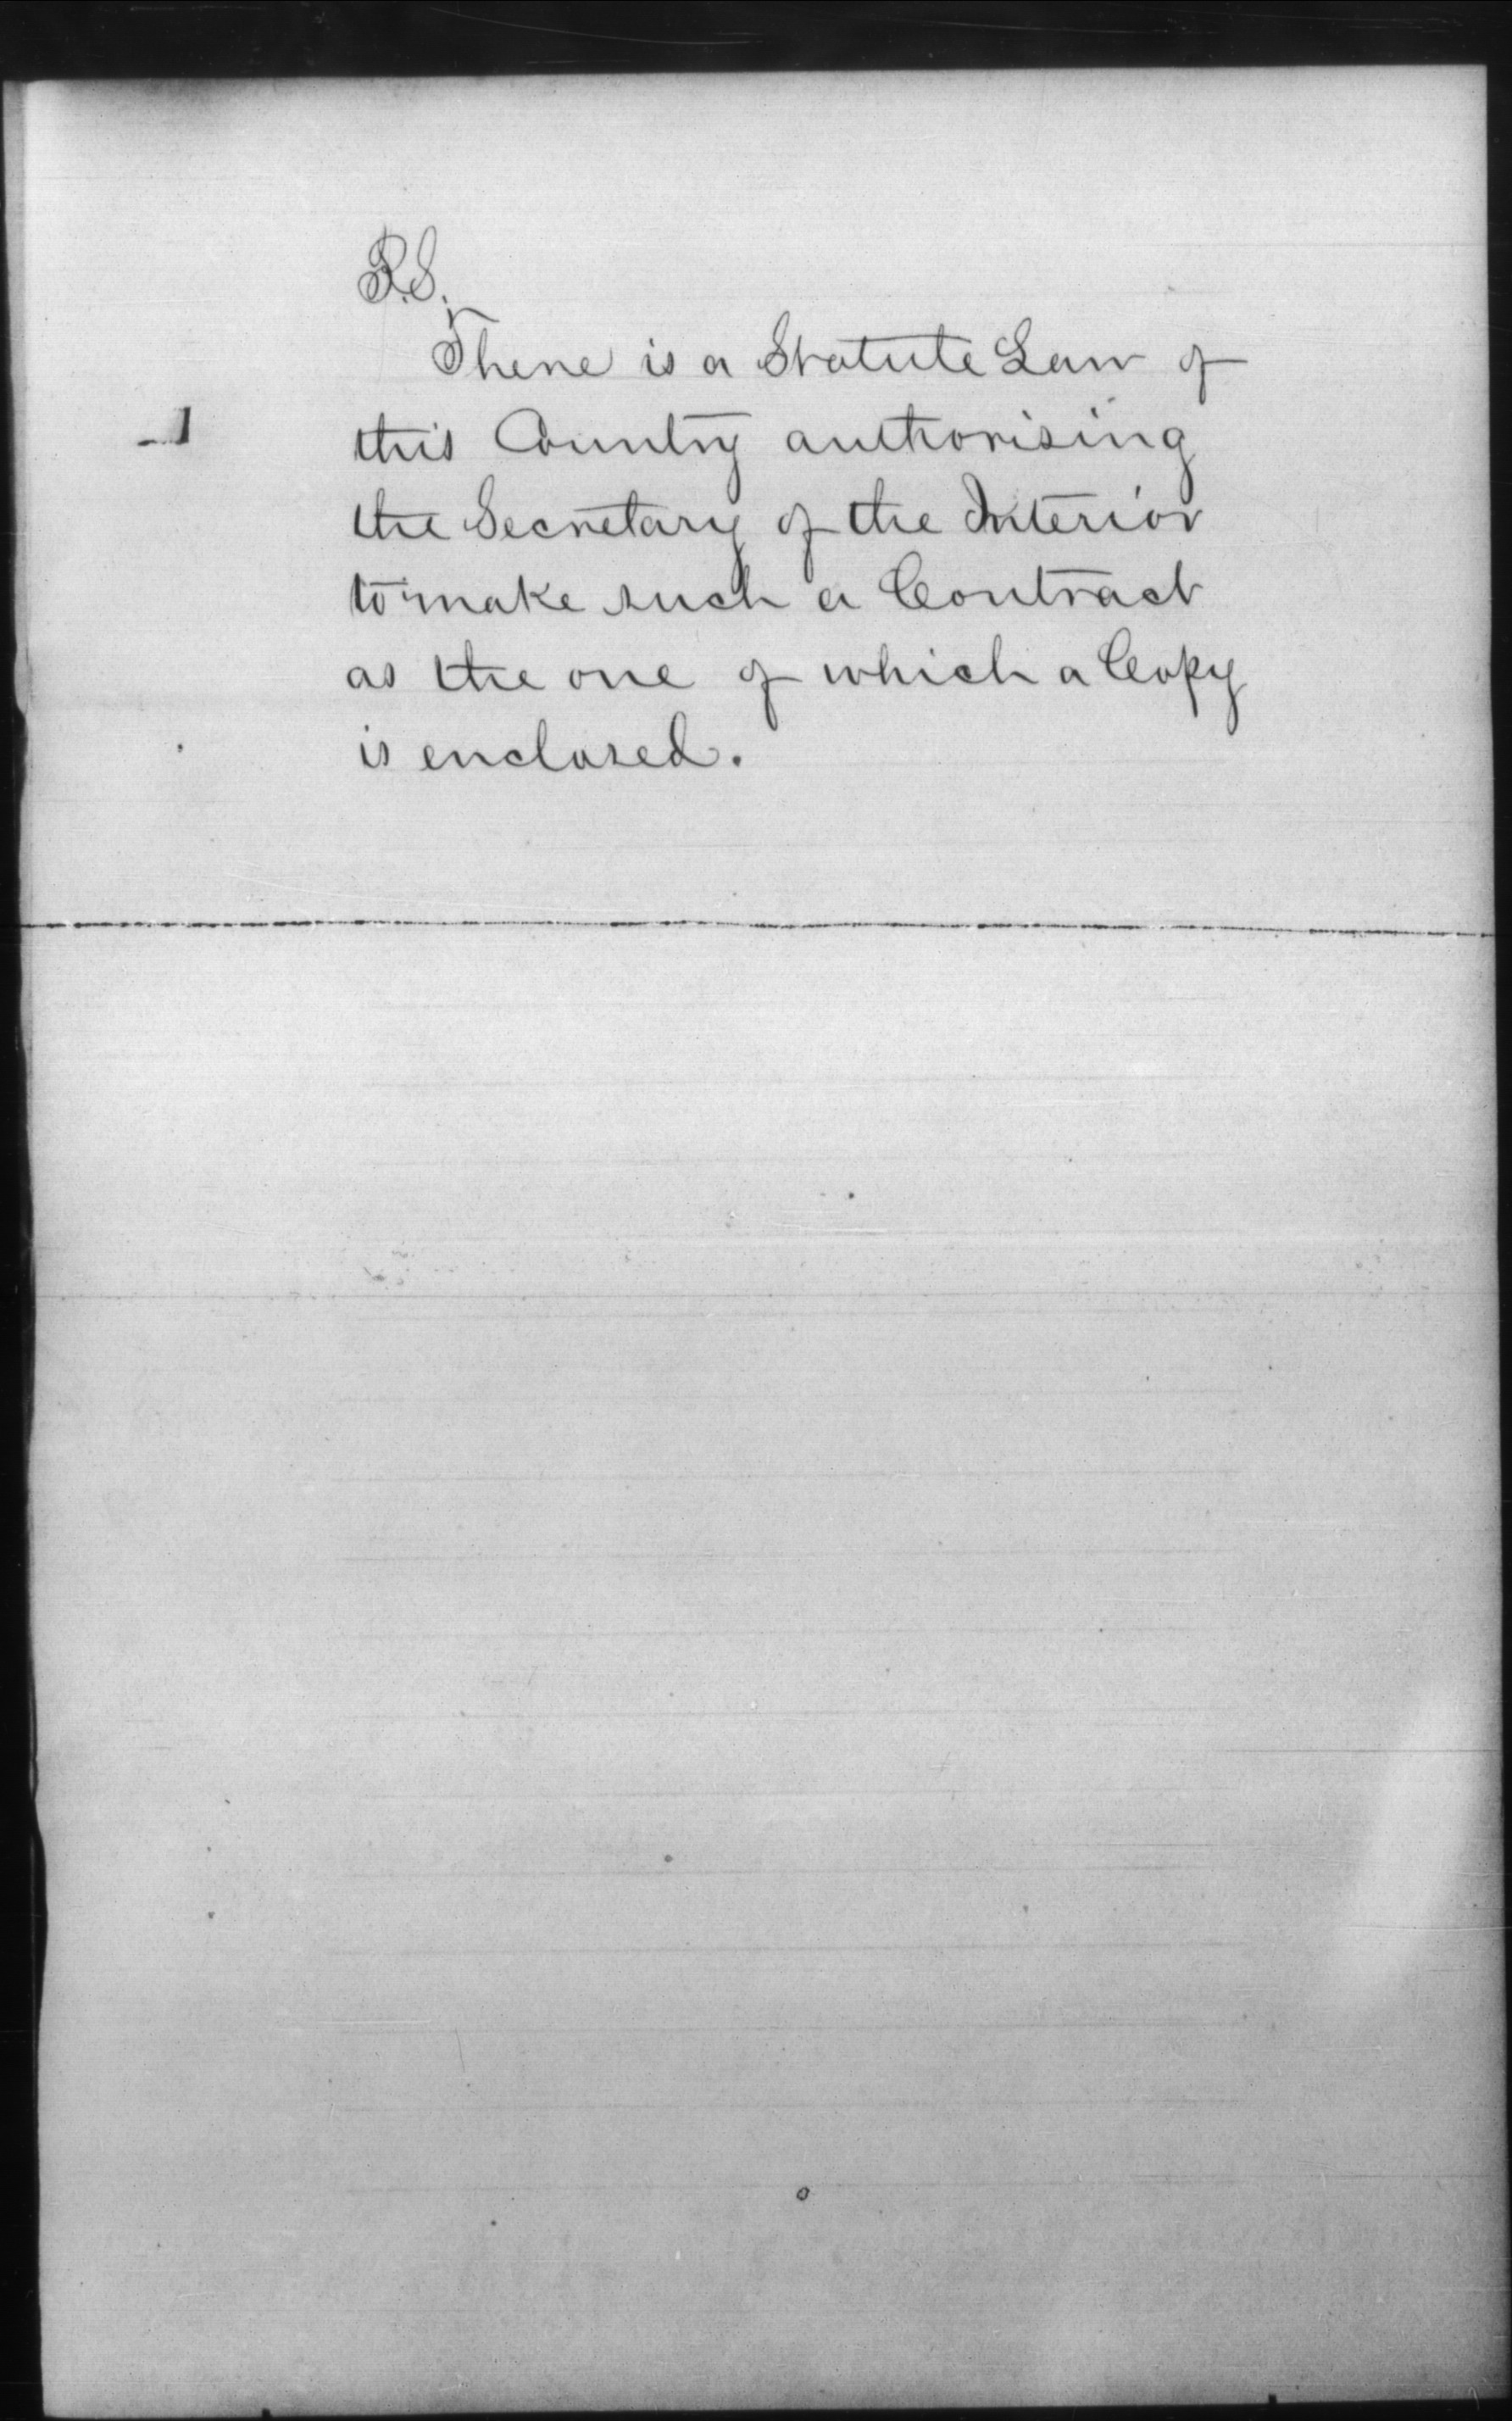 P.S.
There is a Statute Law of
this Country authorising
the Secretary of the Interior
to make such a Contract
as the one of which a Copy
is enclosed.